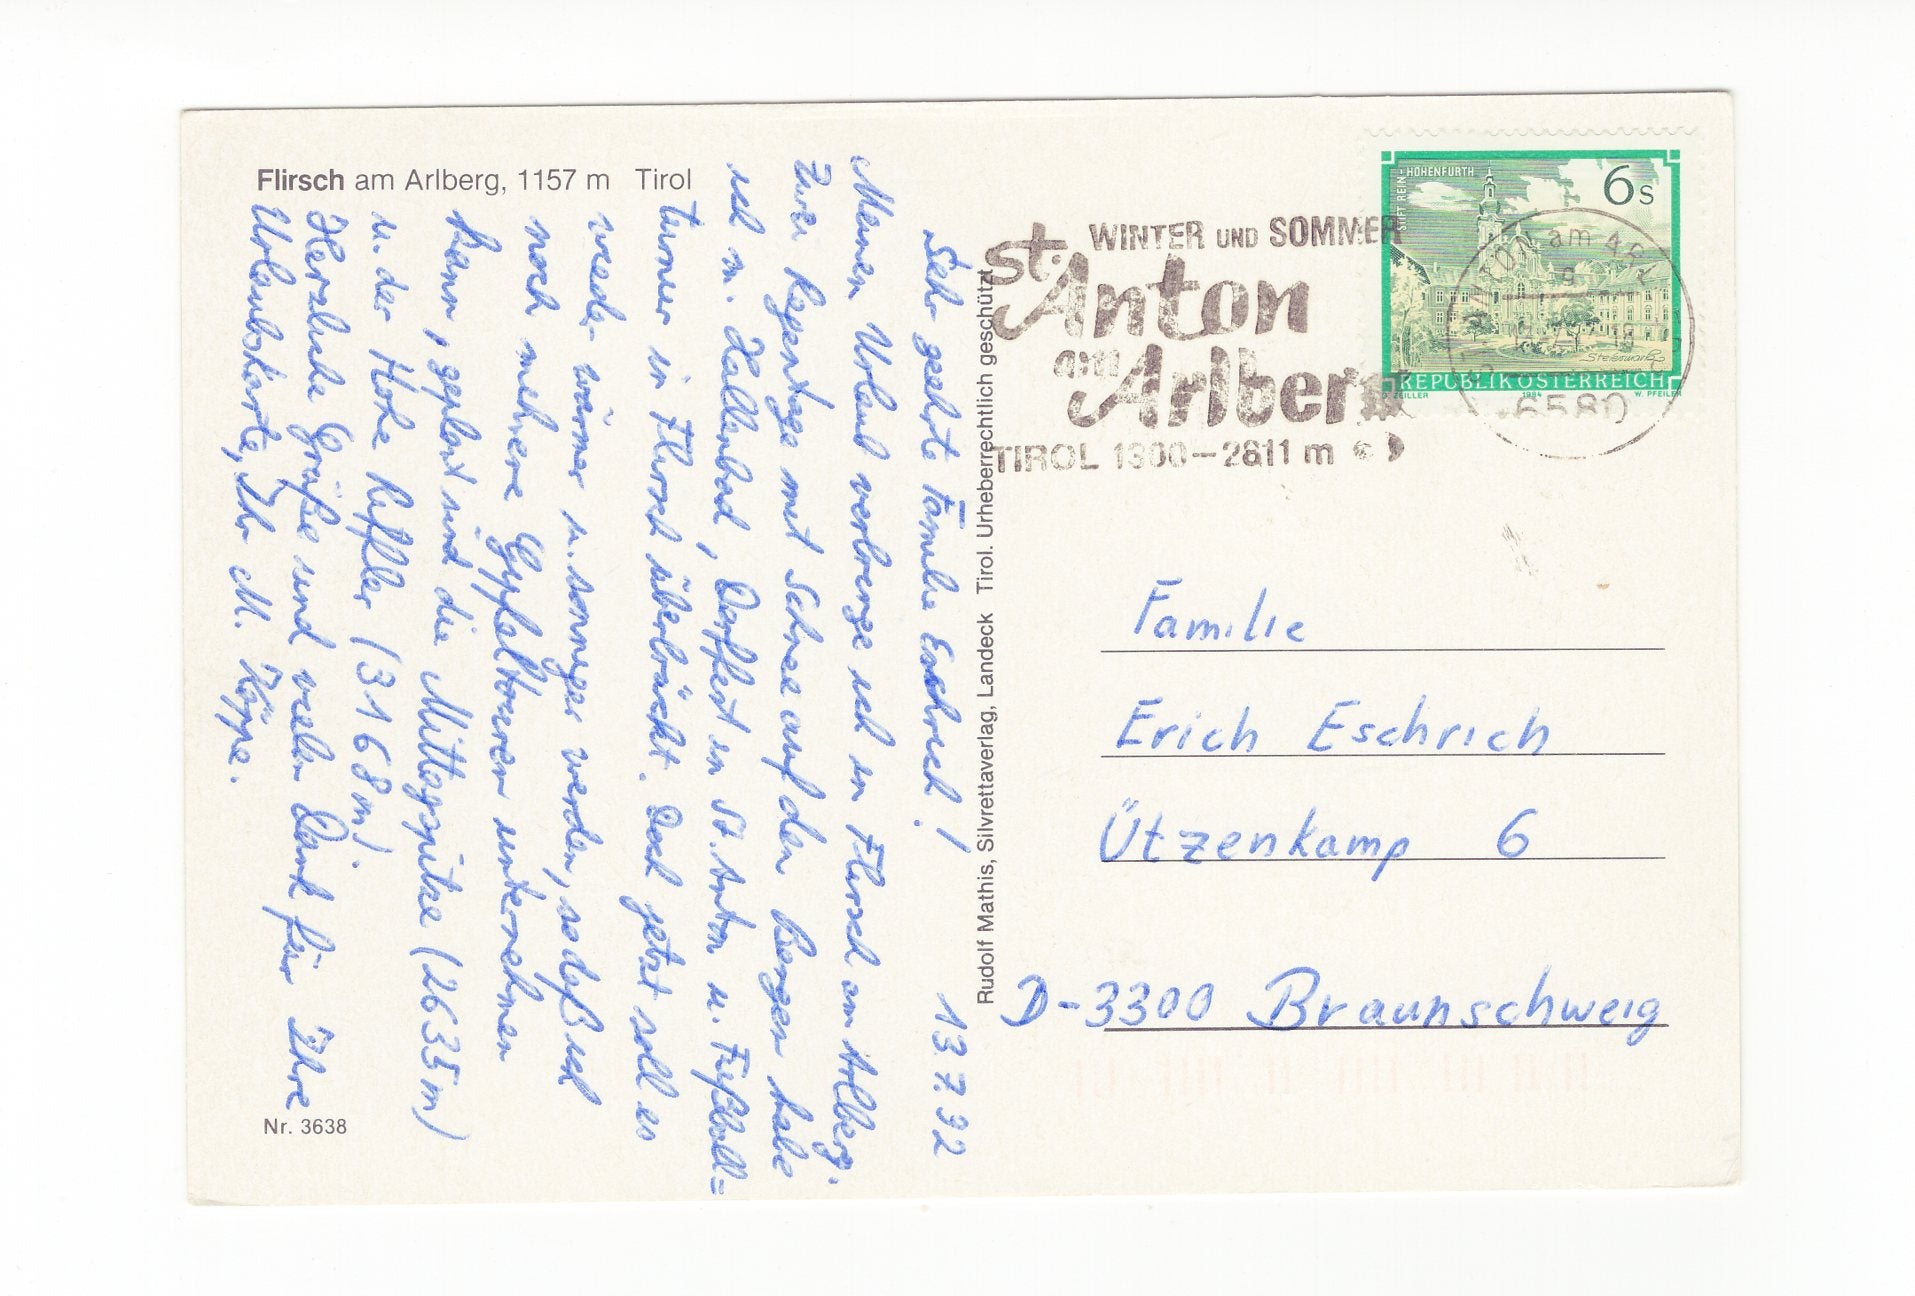 Flirsch am Arlberg, 1157 m Tirol
Sehr geehrte Familie Eschrich!
13.7.92
Meinen Urlaub verbringe ich in Flirsch am Arlberg.
Zwei Regentage mit Schnee auf den Bergen habe
ich m. Hallenbad, Dorffest in St. Anton u. Fußball=
turnier in Flirsch überbrückt. Doch jetzt soll es
wieder wärmer u. sonniger werden, sodaß ich
noch mehrere Gipfeltouren unternehmen
kann, geplant sind die Mittagspitze (2635 m)
u. der Hohe Riffler (3168 m).
Herzliche Grüße und vielen Dank für Ihre
Urlaubskarte, Ihr M. Köppe.
Nr. 3638
Rudolf Mathis, Silvrettaverlag, Landeck Tirol. Urheberrechtlich geschützt
WINTER UND SOMMER
St. Anton
am Arlberg
TIROL 1300-2811 m
STIFT REIN-HOHENFURTH
6 S
REPUBLIK ÖSTERREICH
ZEILLER 1984 W. PFEILER
ANTON am ARL
6580
Familie
Erich Eschrich
Ützenkamp 6
D-3300 Braunschweig